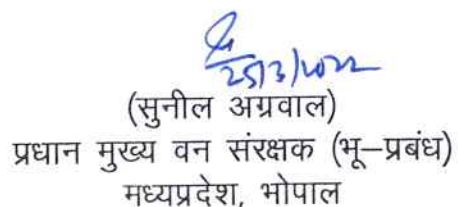 25/3/2022
(सुनील अग्रवाल)
प्रधान मुख्य वन संरक्षक (भू–प्रबंध)
मध्यप्रदेश, भोपाल